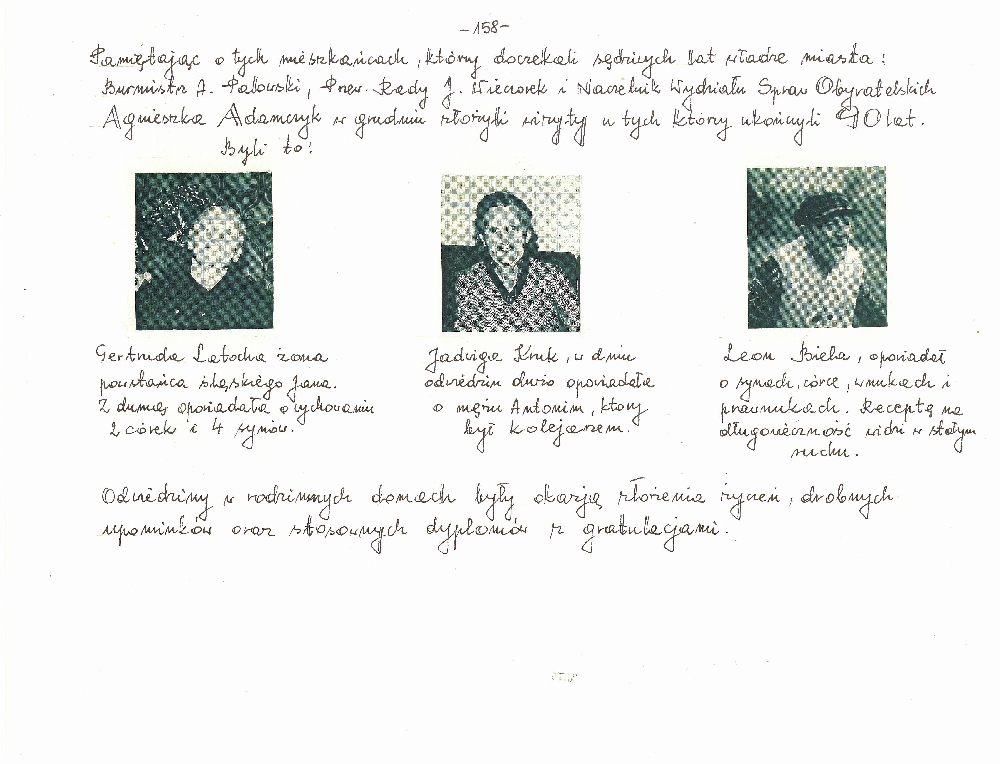 -158-
Pamiętając o tych mieszkańcach, którzy doczekali sędziwych lat władze miasta:
Burmistrz A. Pałowski, Przew. Rady J. Wieczorek i Naczelnik Wydziału Spraw Obywatelskich
Agnieszka Adamczyk w grudniu złożyli wizyty u tych którzy ukończyli 90 lat.
Byli to:
Gertruda Latocha żona
powstańca śląskiego Jana.
Z dumą opowiadała o wychowaniu
2 córek i 4 synów.
Jadwiga Kruk, w dniu
odwiedzin dużo opowiadała
o mężu Antonim, który
był kolejarzem.
Leon Biela, opowiadał
o synach, córce, wnukach i
prawnukach. Receptę na
długowieczność widzi w stałym
ruchu.
Odwiedziny w rodzinnych domach były okazją złożenia życzeń, drobnych
upominków oraz stosownych dyplomów z gratulacjami.